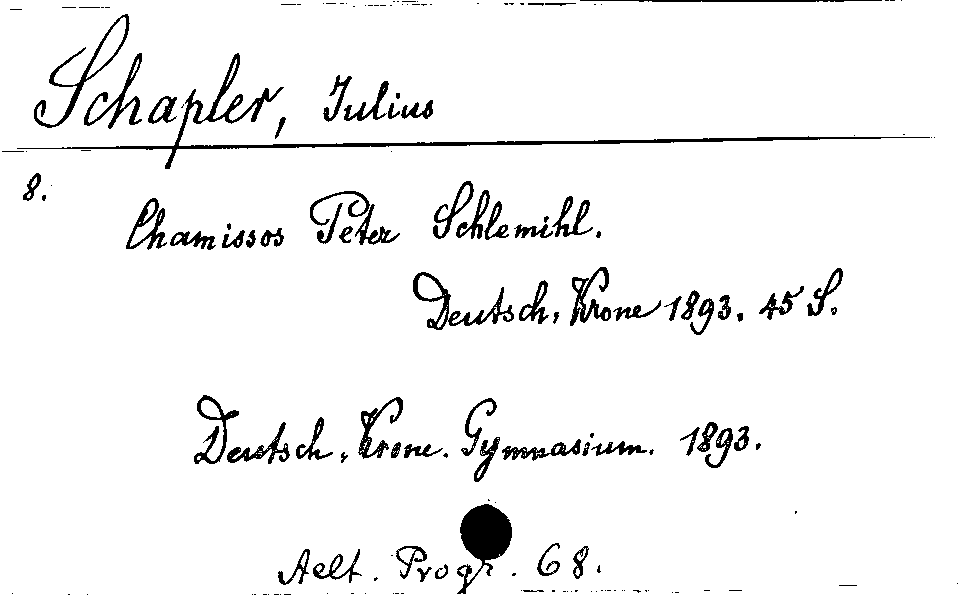 Schapler, Julius
8.
Chamissos Peter Schlemihl.
Deutsch, Krone 1893. 45 S.
Deutsch, Krone. Gymnasium. 1893.
Aelt. Progr. 68.